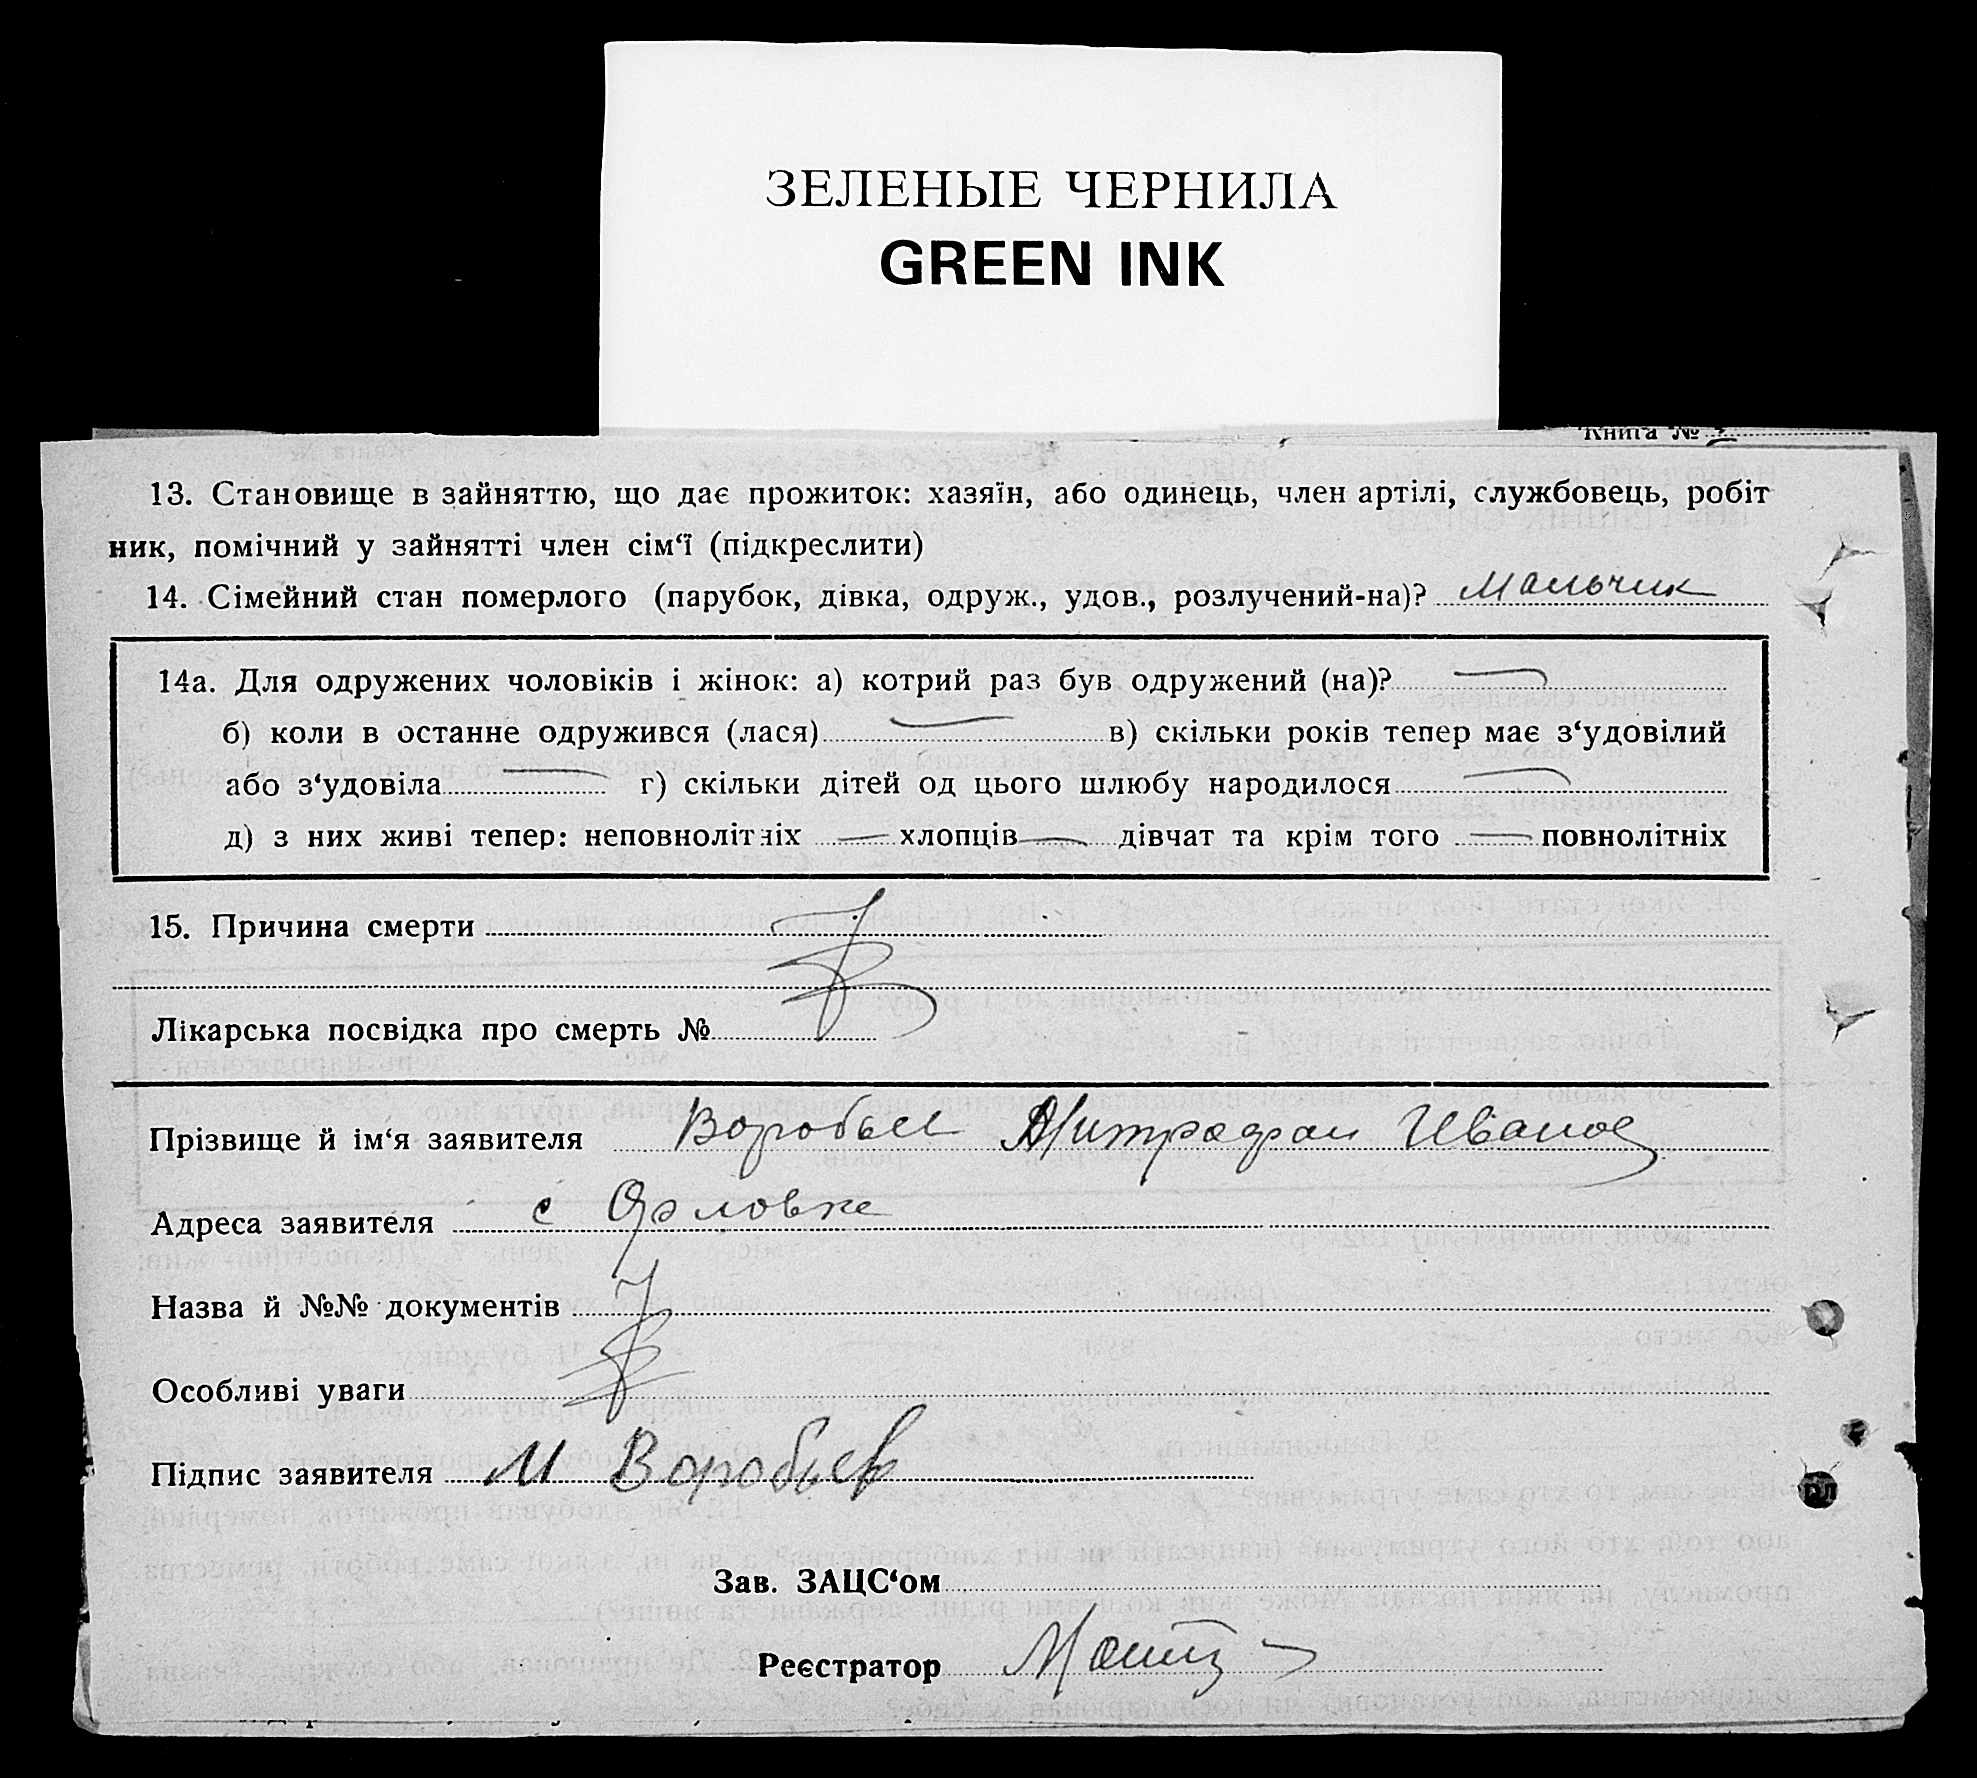 ЗЕЛЕНЫЕ ЧЕРНИЛА
GREEN INK
Книга №
13. Становище в зайняттю, що дає прожиток: хазяїн, або одинець, член артілі, службовець, робіт
ник, помічний у зайнятті член сім‘ї (підкреслити)
14. Сімейний стан померлого (парубок, дівка, одруж., удов., розлучений-на)? Мальчик
14а. Для одружених чоловіків і жінок: а) котрий раз був одружений (на)? —
б) коли в останне одружився (лася) — в) скільки років тепер має з‘удовілий
або з‘удовіла — г) скільки дітей од цього шлюбу народилося —
д) з них живі тепер: неповнолітніх — хлопців — дівчат та крім того — повнолітніх
15. Причина смерти
Лікарська посвідка про смерть №
Прізвище й ім‘я заявителя Воробьев Митрофан Иванов
Адреса заявителя с Орловке
Назва й №№ документів
Особливі уваги
Підпис заявителя М Воробьев
Зав. ЗАЦС‘ом
Реєстратор